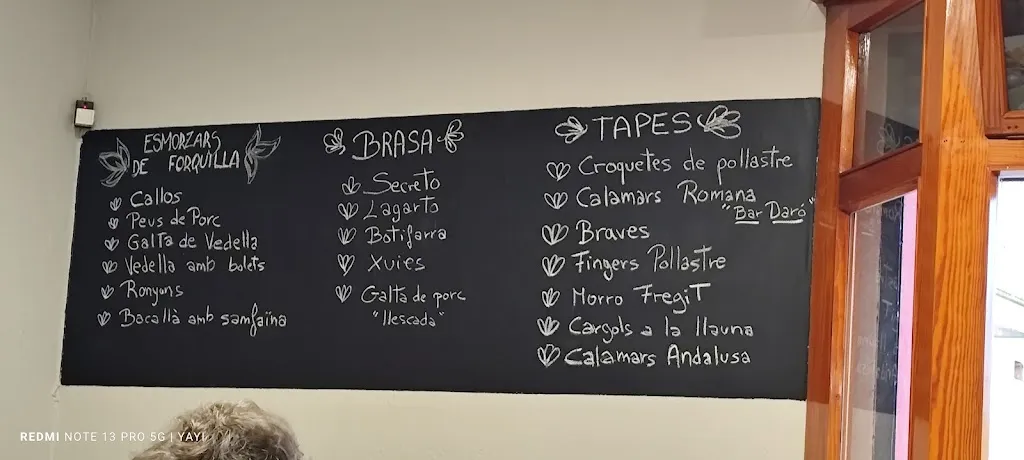 ESMORZARS
DE FORQUILLA
Callos
Peus de Porc
Galta de Vedella
Vedella amb bolets
Ronyons
Bacallà amb samfaïna
BRASA
Secreto
Lagarto
Botifarra
Xuies
Galta de porc
"llescada"
TAPES
Croquetes de pollastre
Calamars Romana
"Bar Daró"
Braves
Fingers Pollastre
Morro FregiT
Cargols a la llauna
Calamars Andalusa
REDMI NOTE 13 PRO 5G | YAYI